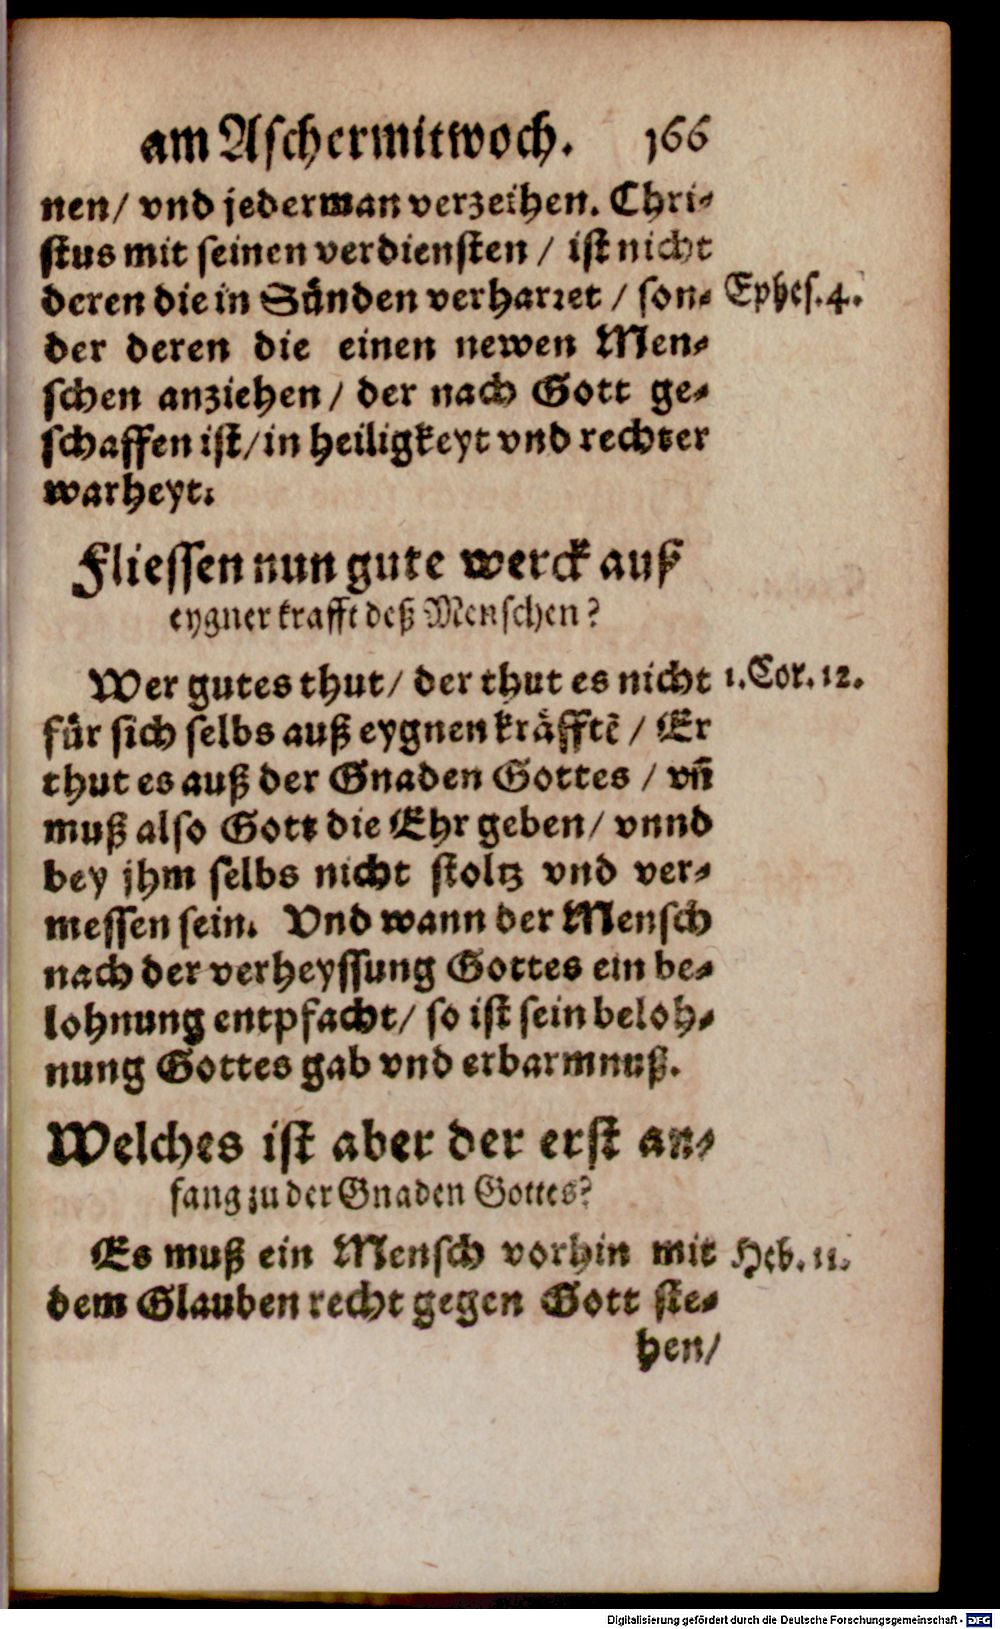 am Aschermittwoch. 166
nen/ vnd jederman verzeihen. Chri⸗
stus mit seinen verdiensten / ist nicht
deren die in Sünden verharret / son⸗ Ephes. 4.
der deren die einen newen Men⸗
schen anziehen / der nach Gott ge⸗
schaffen ist/ in heiligkeyt vnd rechter
warheyt.
Fliessen nun gute werck auß
eygner krafft deß Menschen?
Wer gutes thut/ der thut es nicht 1. Cor. 12.
für sich selbs auß eygnen kräfftẽ / Er
thut es auß der Gnaden Gottes / vñ
muß also Gott die Ehr geben/ vnnd
bey jhm selbs nicht stoltz vnd ver⸗
messen sein. Vnd wann der Mensch
nach der verheyssung Gottes ein be⸗
lohnung entpfacht/ so ist sein beloh⸗
nung Gottes gab vnd erbarmnuß.
Welches ist aber der erst an⸗
fang zu der Gnaden Gottes?
Es muß ein Mensch vorhin mit Heb. 11.
dem Glauben recht gegen Gott ste⸗
hen/
Digitalisierung gefördert durch die Deutsche Forschungsgemeinschaft - DFG